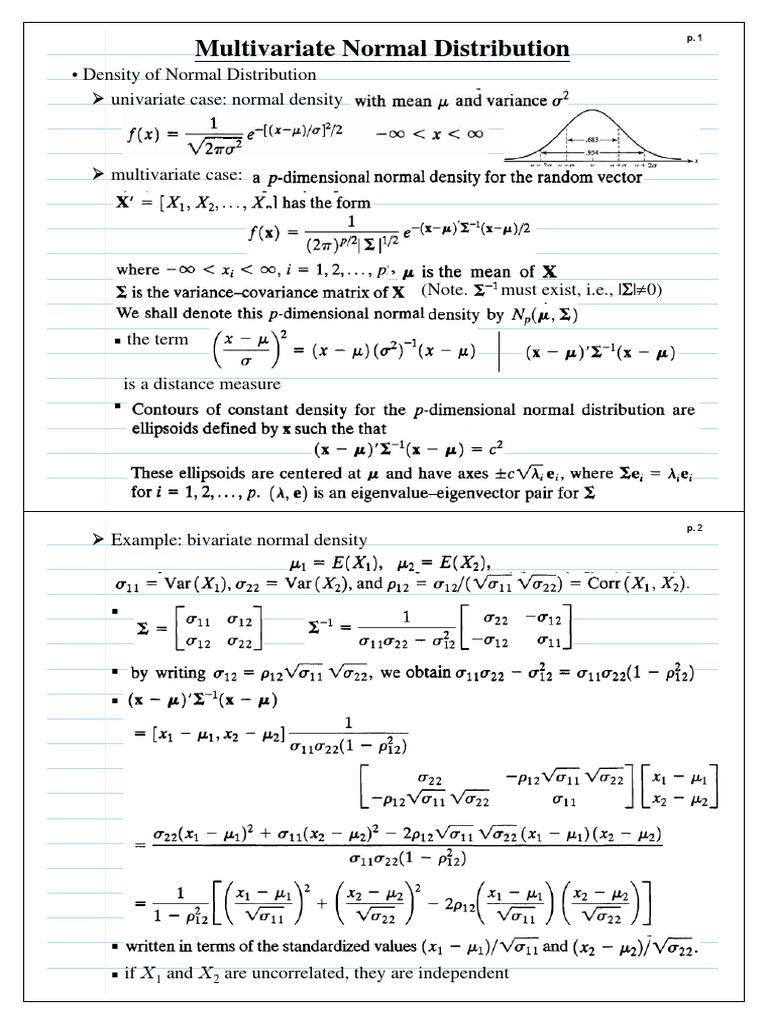 p. 1
Multivariate Normal Distribution
• Density of Normal Distribution
➢ univariate case: normal density with mean μ and variance σ²
f(x) = 1/√(2πσ²) e^(−[(x−μ)/σ]²/2)   −∞ < x < ∞
.683
.954
➢ multivariate case: a p-dimensional normal density for the random vector
X′ = [X₁, X₂, ..., Xₚ] has the form
f(x) = 1/((2π)^(p/2)|Σ|^(1/2)) e^(−(x−μ)′Σ⁻¹(x−μ)/2)
where −∞ < xᵢ < ∞, i = 1, 2, ..., p, μ is the mean of X
Σ is the variance–covariance matrix of X (Note. Σ⁻¹ must exist, i.e., |Σ|≠0)
We shall denote this p-dimensional normal density by Nₚ(μ, Σ)
▪ the term ((x − μ)/σ)² = (x − μ)(σ²)⁻¹(x − μ) | (x − μ)′Σ⁻¹(x − μ)
is a distance measure
▪ Contours of constant density for the p-dimensional normal distribution are
ellipsoids defined by x such the that
(x − μ)′Σ⁻¹(x − μ) = c²
These ellipsoids are centered at μ and have axes ±c√λᵢ eᵢ, where Σeᵢ = λᵢeᵢ
for i = 1, 2, ..., p. (λ, e) is an eigenvalue–eigenvector pair for Σ
p. 2
➢ Example: bivariate normal density
μ₁ = E(X₁), μ₂ = E(X₂),
σ₁₁ = Var(X₁), σ₂₂ = Var(X₂), and ρ₁₂ = σ₁₂/(√σ₁₁ √σ₂₂) = Corr(X₁, X₂).
▪ Σ = [σ₁₁ σ₁₂; σ₁₂ σ₂₂]   Σ⁻¹ = 1/(σ₁₁σ₂₂ − σ₁₂²) [σ₂₂ −σ₁₂; −σ₁₂ σ₁₁]
▪ by writing σ₁₂ = ρ₁₂√σ₁₁ √σ₂₂, we obtain σ₁₁σ₂₂ − σ₁₂² = σ₁₁σ₂₂(1 − ρ₁₂²)
▪ (x − μ)′Σ⁻¹(x − μ)
= [x₁ − μ₁, x₂ − μ₂] 1/(σ₁₁σ₂₂(1 − ρ₁₂²))
[σ₂₂ −ρ₁₂√σ₁₁ √σ₂₂; −ρ₁₂√σ₁₁ √σ₂₂ σ₁₁] [x₁ − μ₁; x₂ − μ₂]
= (σ₂₂(x₁ − μ₁)² + σ₁₁(x₂ − μ₂)² − 2ρ₁₂√σ₁₁ √σ₂₂ (x₁ − μ₁)(x₂ − μ₂))/(σ₁₁σ₂₂(1 − ρ₁₂²))
= 1/(1 − ρ₁₂²) [((x₁ − μ₁)/√σ₁₁)² + ((x₂ − μ₂)/√σ₂₂)² − 2ρ₁₂((x₁ − μ₁)/√σ₁₁)((x₂ − μ₂)/√σ₂₂)]
▪ written in terms of the standardized values (x₁ − μ₁)/√σ₁₁ and (x₂ − μ₂)/√σ₂₂.
▪ if X₁ and X₂ are uncorrelated, they are independent